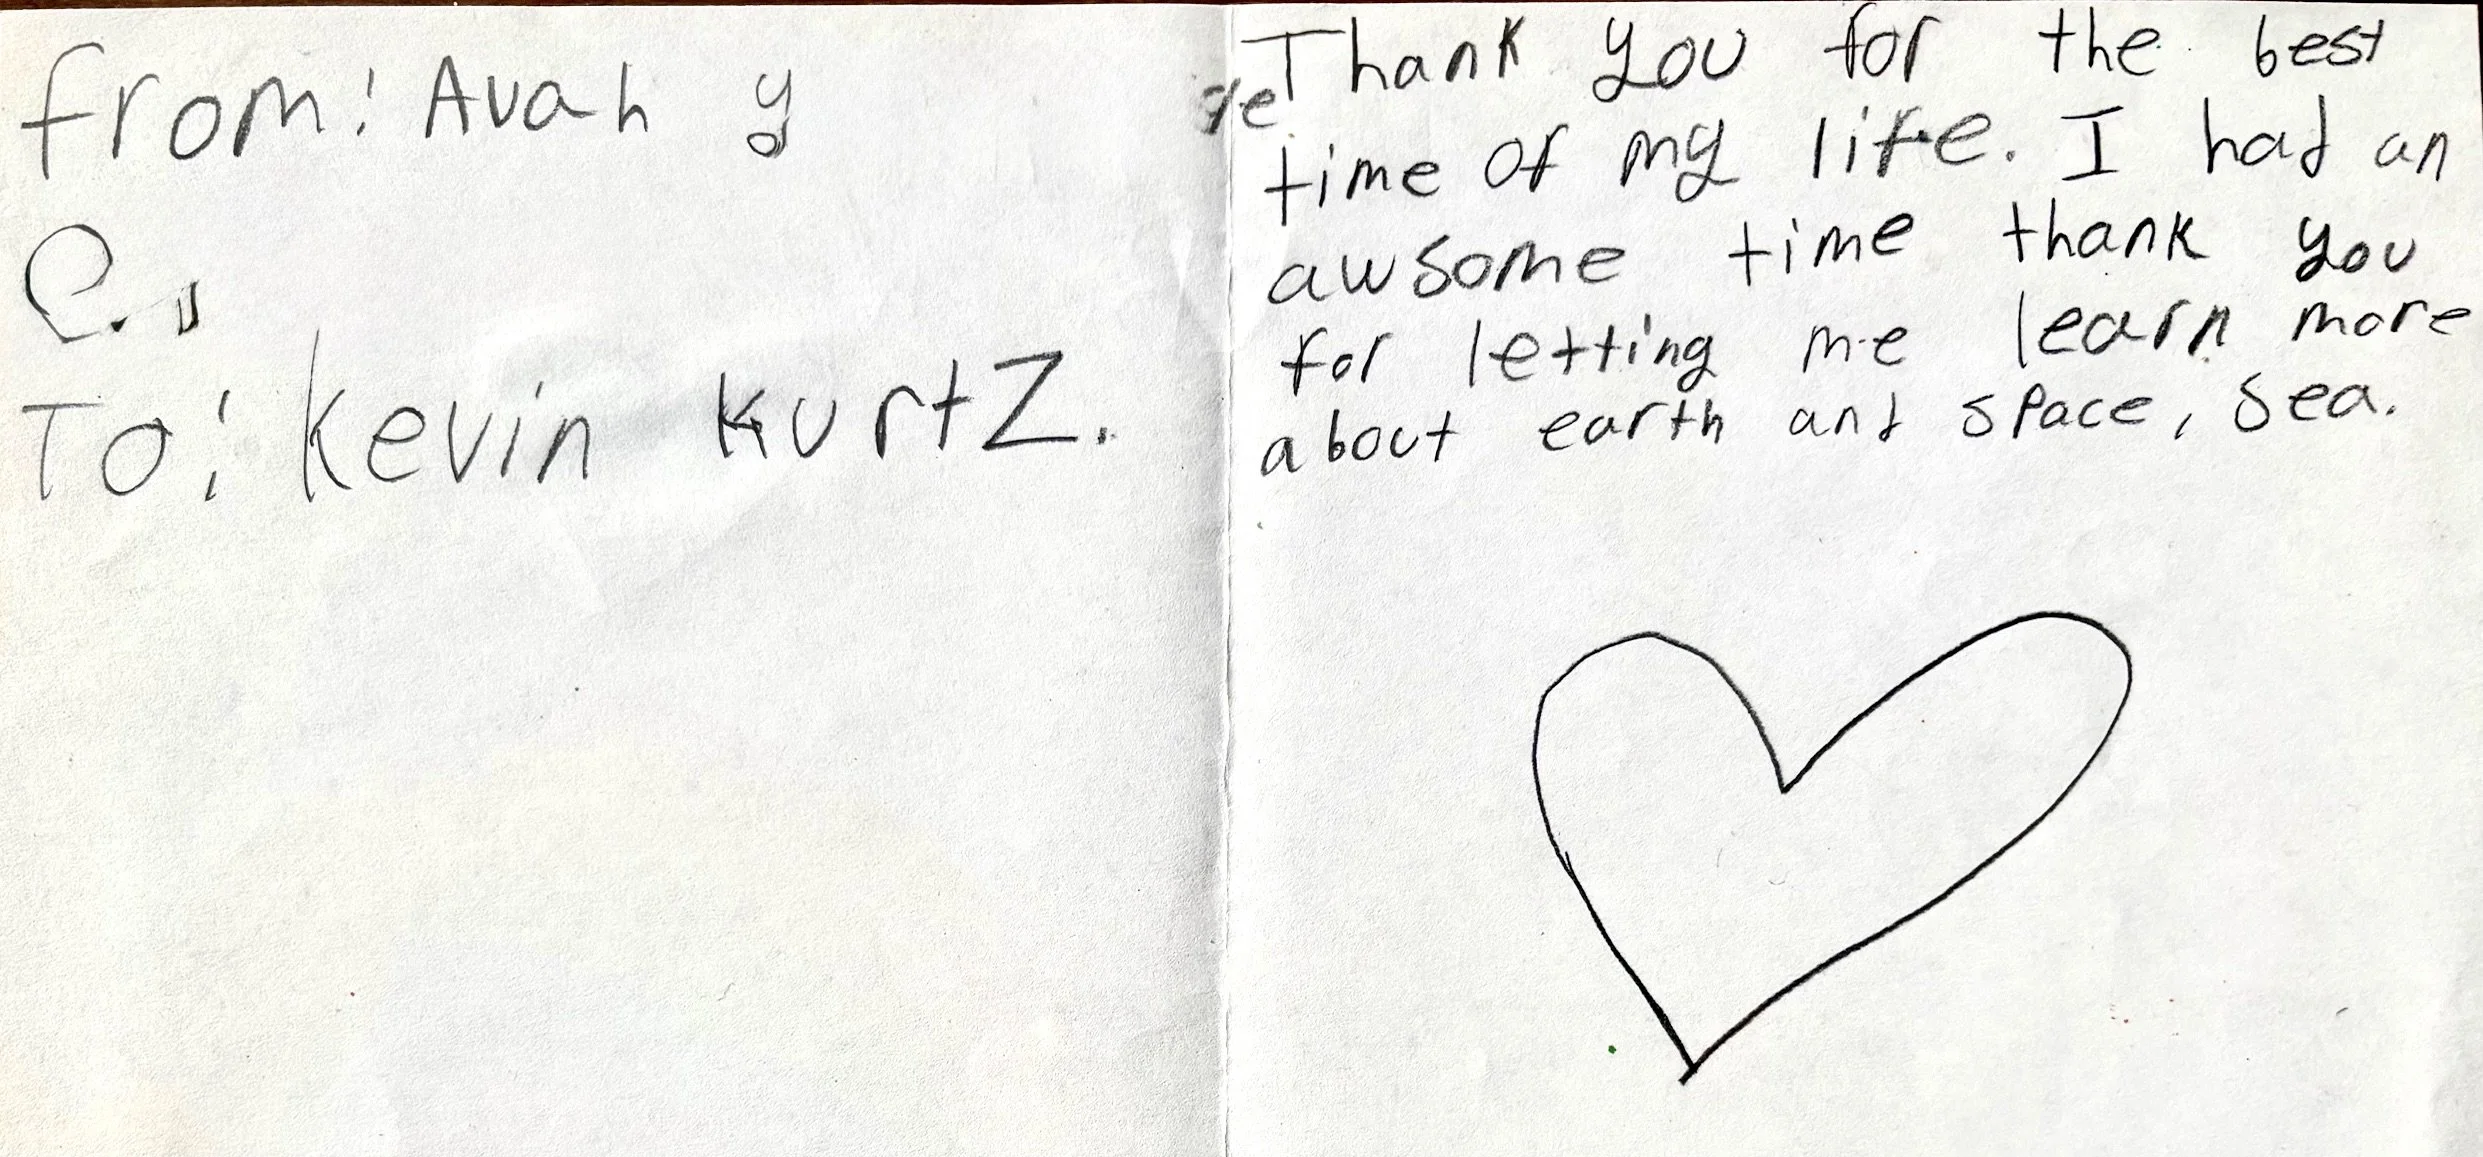 from: Avah y
C.
To: Kevin KurtZ.
Thank you for the best
time of my life. I had an
awsome time thank you
for letting me learn more
about earth and space, sea.